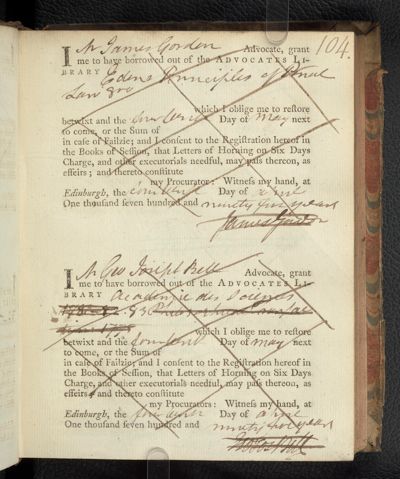 104.
I Mr James Gordon Advocate, grant
me to have borrowed out of the ADVOCATES LI-
BRARY Edens Principles of Penal
Law 8vo
which I oblige me to reſtore
betwixt and the Day of May next
to come, or the Sum of
in caſe of Failzie; and I conſent to the Regiſtration hereof in
the Books of Seſſion, that Letters of Horning on Six Days
Charge, and other executorials needful, may paſs thereon, as
effeirs; and thereto conſtitute
my Procurator: Witneſs my hand, at
Edinburgh, the Day of
One thouſand ſeven hundred and ninety five years
James Gordon
I Mr Geo Joseph Bell Advocate, grant
me to have borrowed out of the ADVOCATES LI-
BRARY Academie des Sciences
which I oblige me to reſtore
betwixt and the Day of May next
to come, or the Sum of
in caſe of Failzie; and I conſent to the Regiſtration hereof in
the Books of Seſſion, that Letters of Horning on Six Days
Charge, and other executorials needful, may paſs thereon, as
effeirs; and thereto conſtitute
my Procurator: Witneſs my hand, at
Edinburgh, the Day of
One thouſand ſeven hundred and ninety five years
Bell